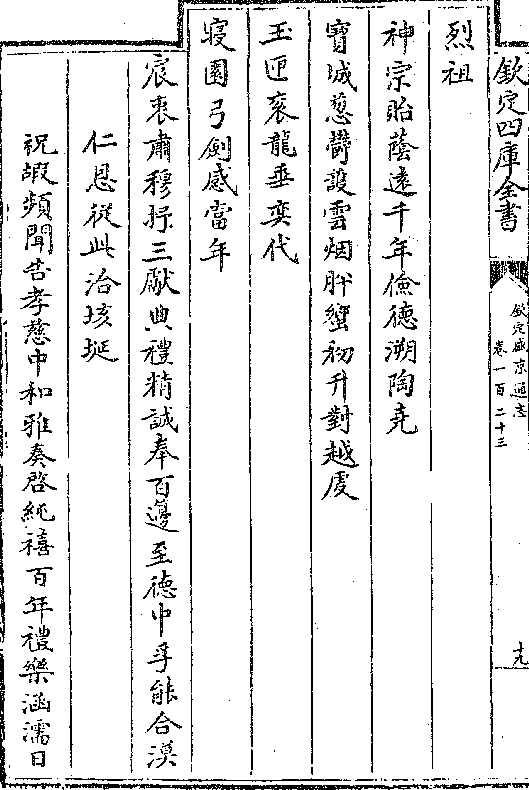 欽定四庫全書
欽定盛京通志
卷一百二十三
十九
烈祖
神宗貽蔭遠千年儉德溯陶堯
寶城葱欝設雲烟肸蠁初升對越虔
玉匣袞龍垂奕代
寢園弓劍感當年
宸衷肅穆抒三獻典禮精誠奉百籩至德中孚能合漠
仁恩從此洽垓埏
祝嘏頻聞告孝慈中和雅奏啓純禧百年禮樂涵濡日